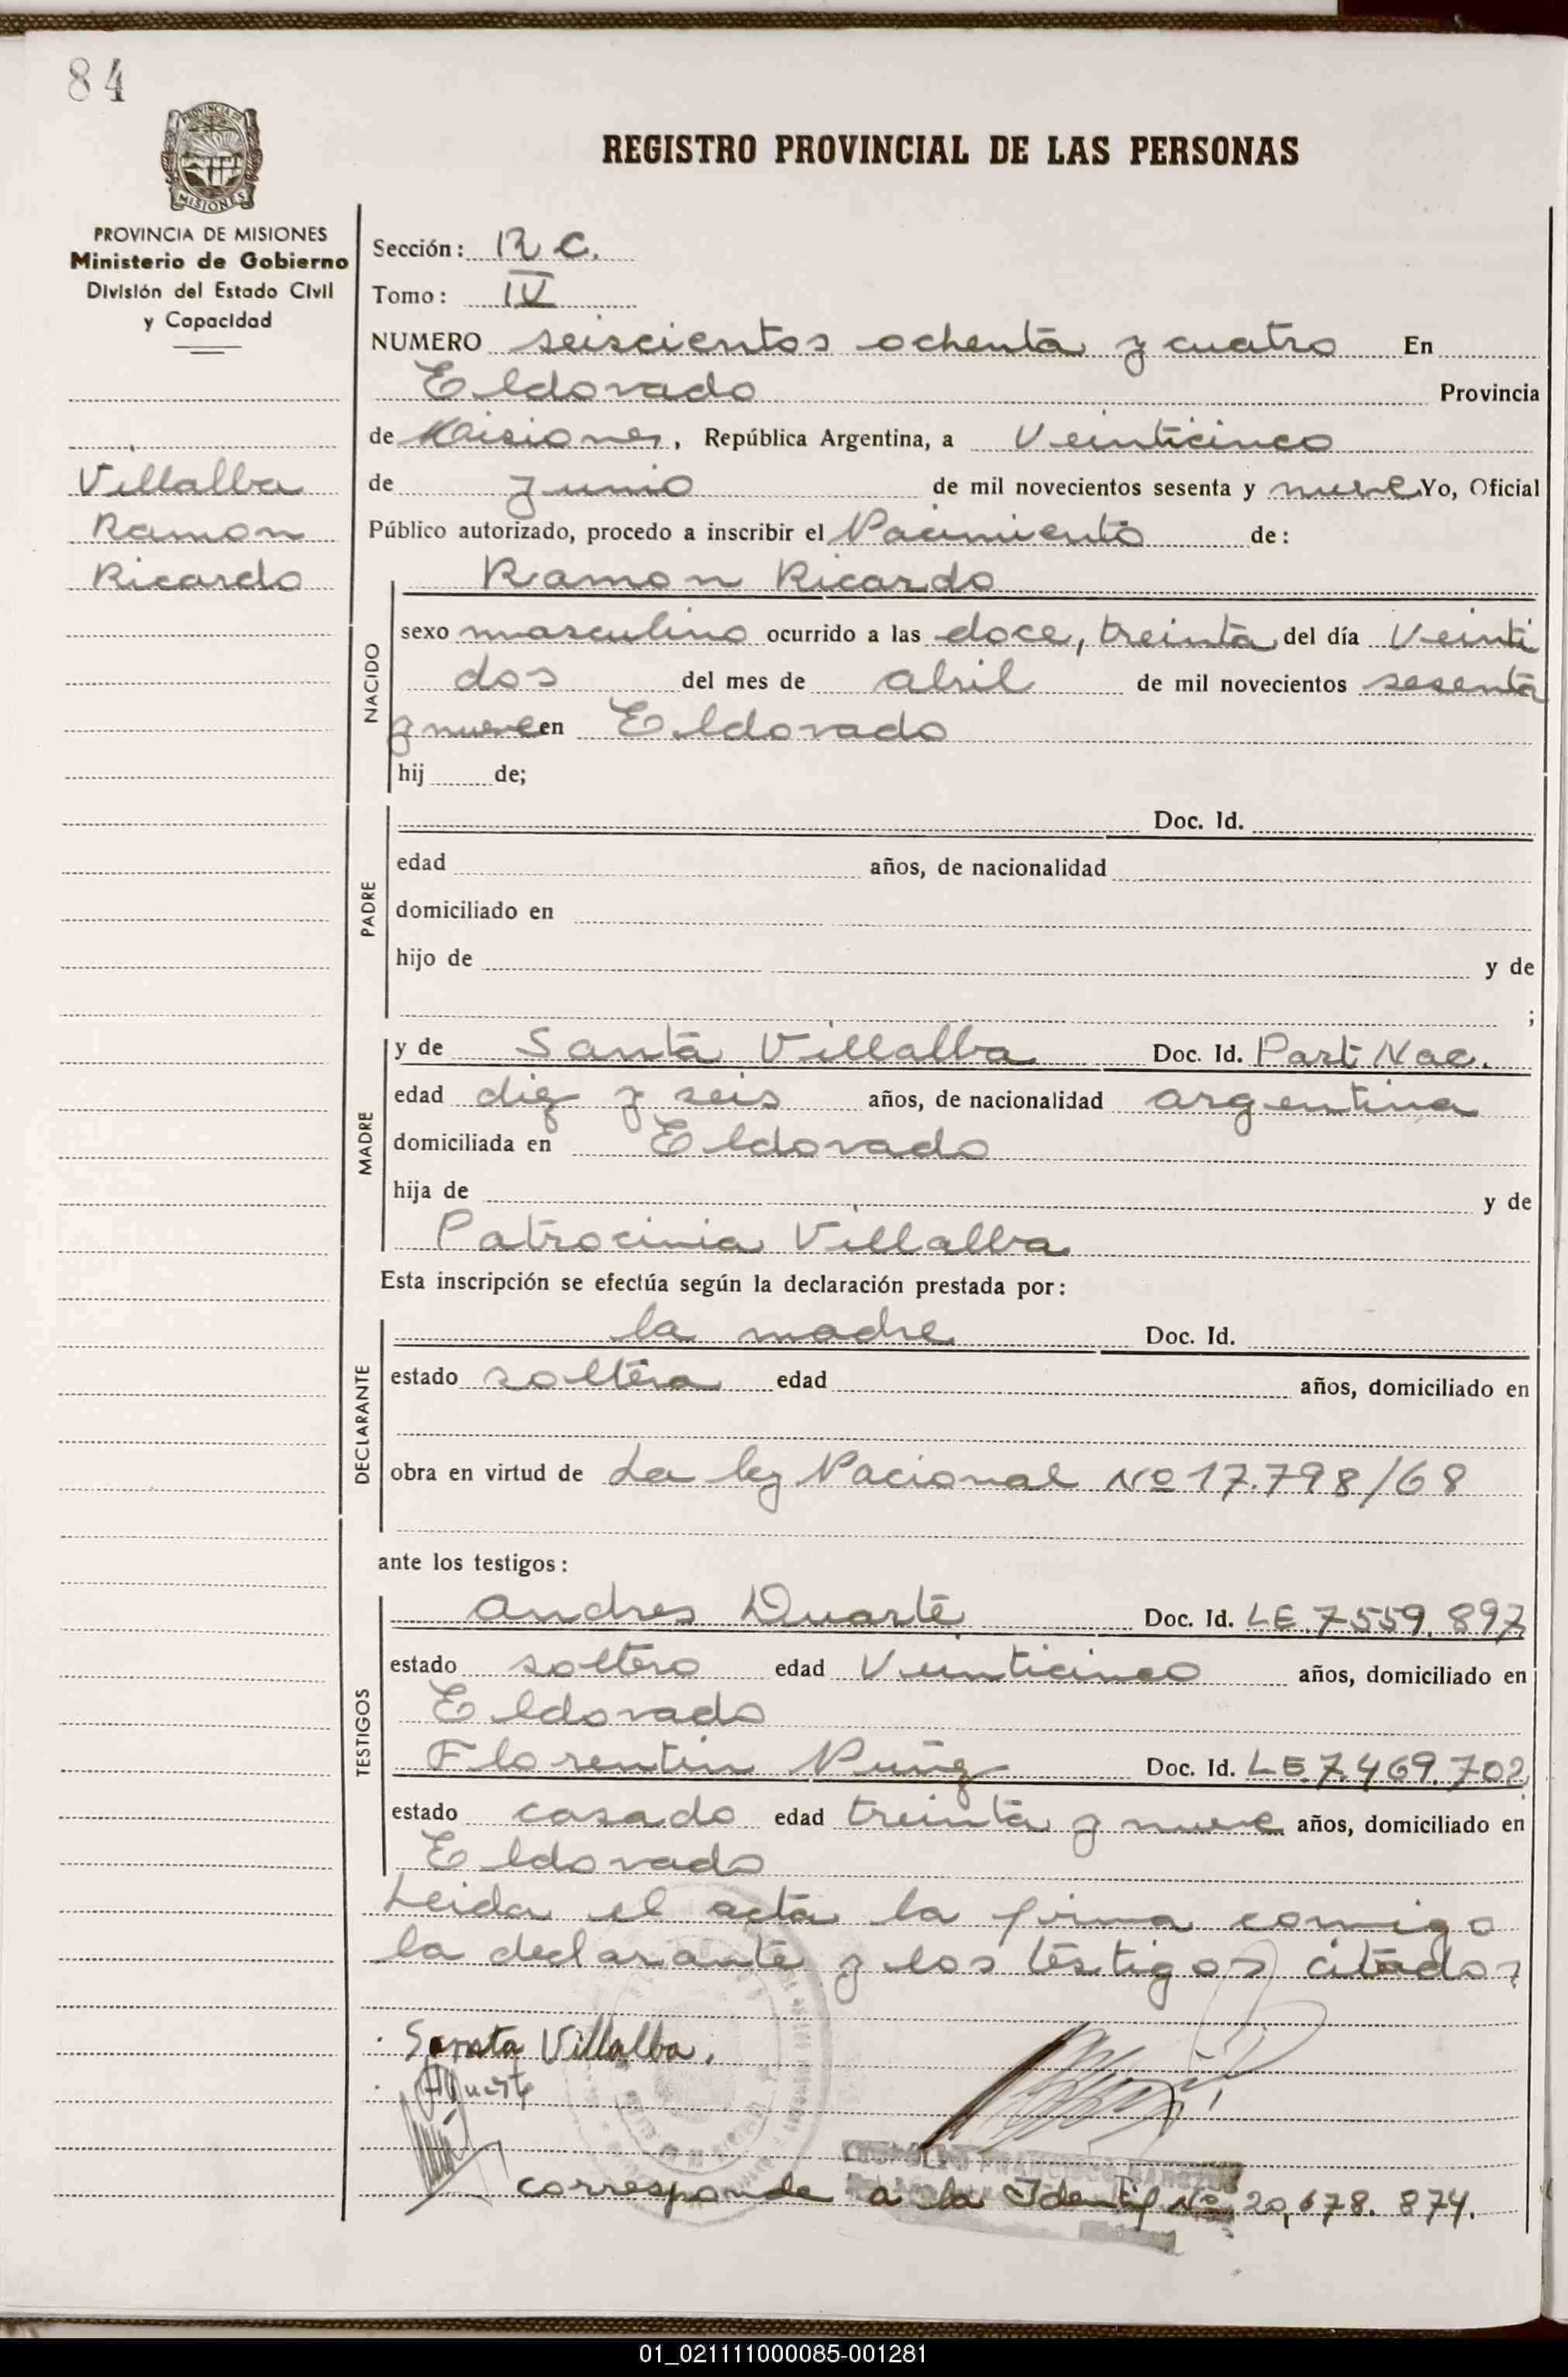 84
PROVINCIA DE
MISIONES
REGISTRO PROVINCIAL DE LAS PERSONAS
PROVINCIA DE MISIONES
Ministerio de Gobierno
División del Estado Civil
y Capacidad
Sección: R C.
Tomo: IV
NUMERO seiscientos ochenta y cuatro En
Eldorado Provincia
de Misiones, República Argentina, a Veinticinco
Villalba
de Junio de mil novecientos sesenta y nueve Yo, Oficial
Ramon
Público autorizado, procedo a inscribir el Nacimiento de:
Ricardo
Ramon Ricardo
NACIDO
sexo masculino ocurrido a las doce, treinta del día Veinti
dos del mes de abril de mil novecientos sesenta
y nueve en Eldorado
hij de;
PADRE
Doc. Id.
edad años, de nacionalidad
domiciliado en
hijo de y de
;
MADRE
y de Santa Villalba Doc. Id. Part Nac.
edad diez y seis años, de nacionalidad argentina
domiciliada en Eldorado
hija de y de
Patrocinia Villalba
Esta inscripción se efectúa según la declaración prestada por:
DECLARANTE
la madre Doc. Id.
estado soltera edad años, domiciliado en
obra en virtud de La ley Nacional Nº 17.798/68
ante los testigos:
TESTIGOS
Andres Duarte Doc. Id. LE.7559.897
estado soltero edad Veinticinco años, domiciliado en
Eldorado
Florentin Nuñez Doc. Id. LE.7.469.702
estado casado edad treinta y nueve años, domiciliado en
Eldorado
Leida el acta la firma conmigo
la declarante y los testigos citados
Santa Villalba.
ADuarte
corresponde a la Identif Nº 20,678.874.
01_021111000085-001281